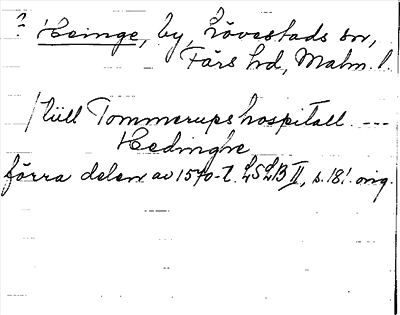 ? Heinge, by, Lövestads sn,
Färs hd, Malm. l.
/ till Tommerups hospitall. ---
Hedinghe
förra delen av 1570-t. LSLB II, s. 18. orig.